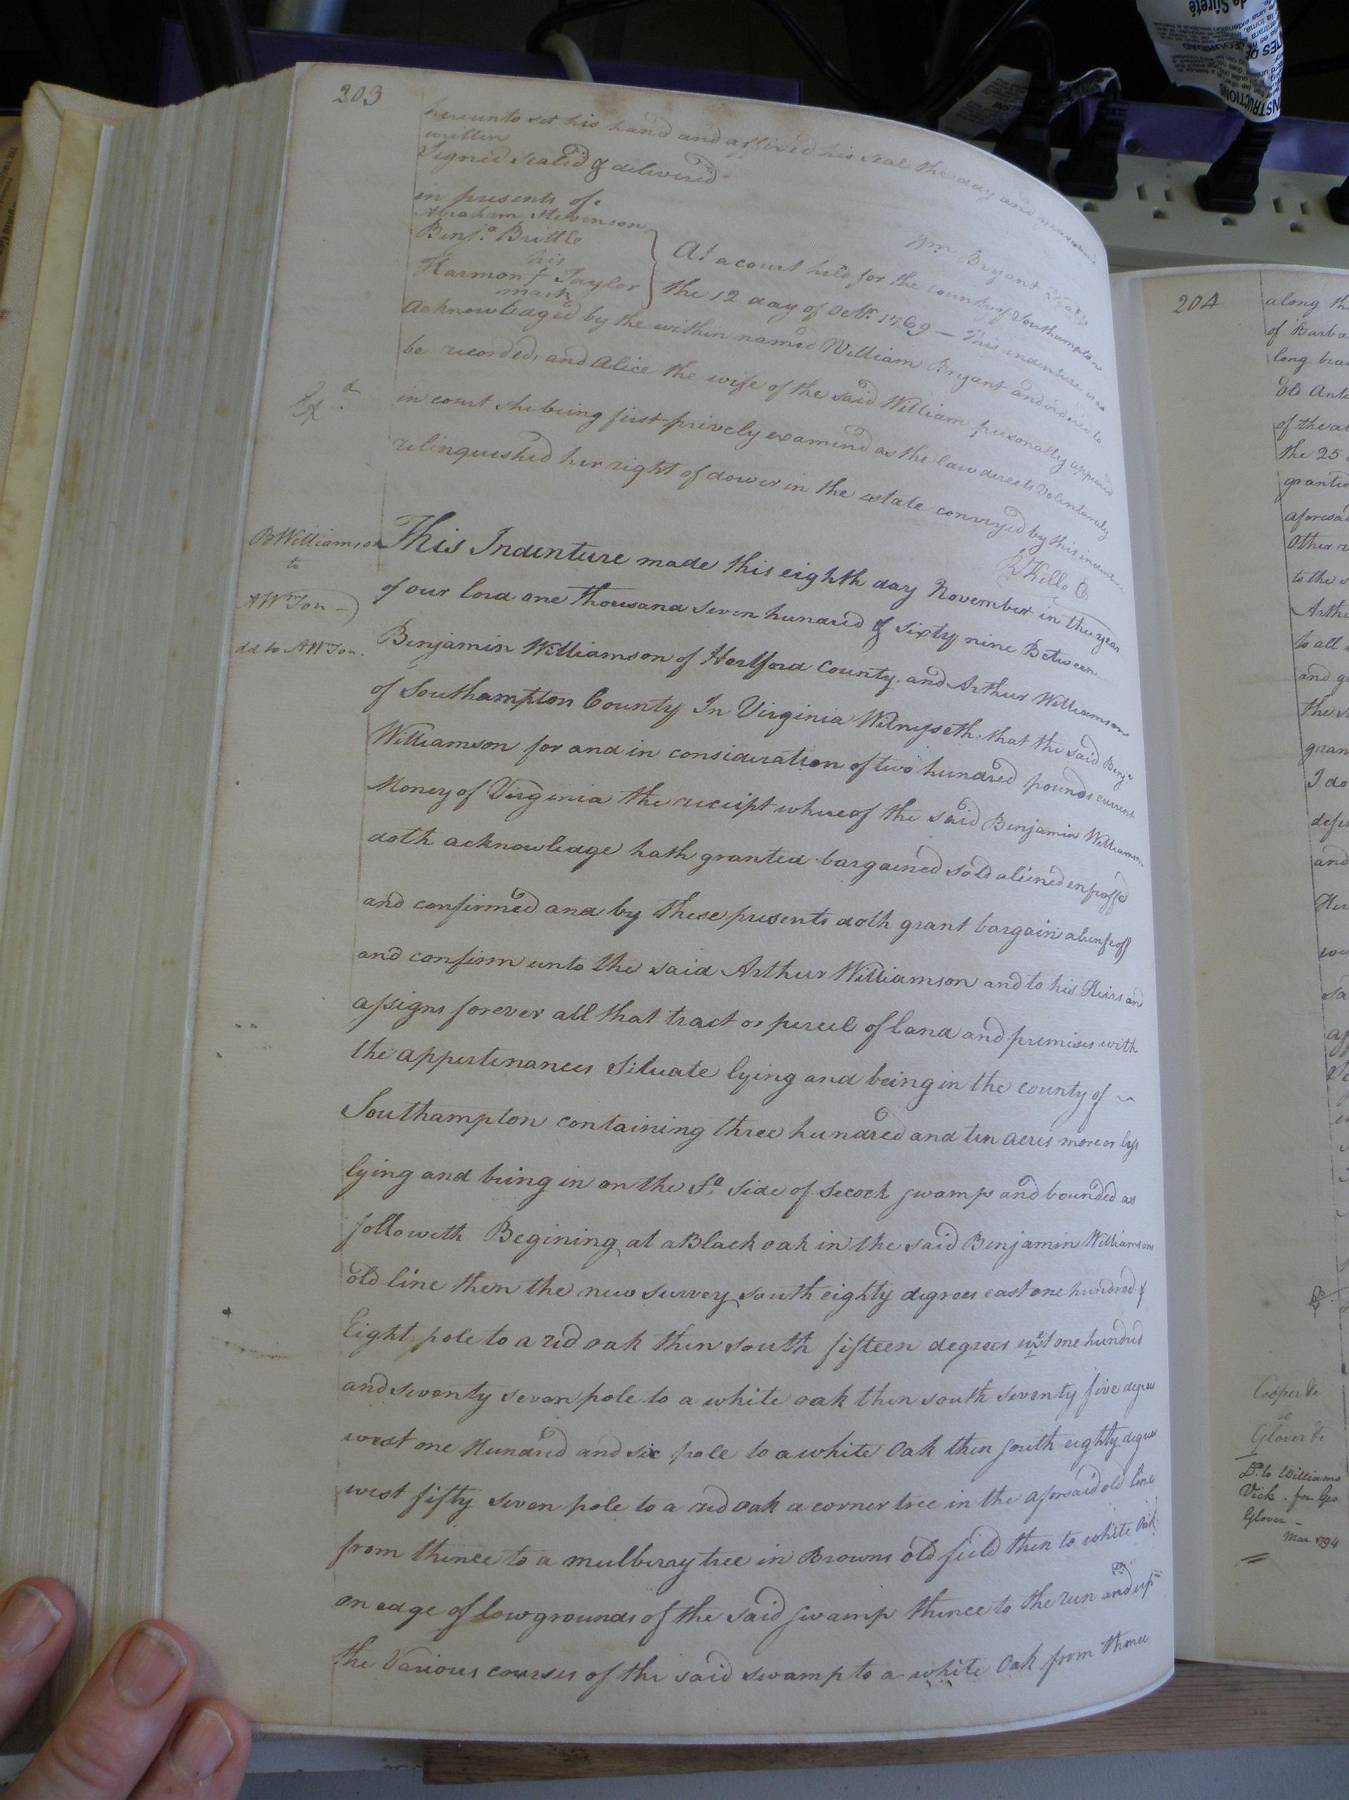 203
hereunto set his hand and affixed his seal the day and
written
Signed Sealed & delivered
in presents of
Abraham Stevenson
Benja. Brittle
his
Harmon Taylor
mark
Wm. Bryant
At a court held for the county of Southampton
the 12 day of Octr. 1769 — This indenture was
acknowledged by the within named William Bryant and ordered to
be recorded, and Alice the wife of the said William personally appeared
in court she being first privily examined as the law directs Voluntarily
relinquished her right of dower in the estate conveyed by this
R Kello C
B Williamson
to
A WSon
dd to A WSon.
This Indenture made this eighth day November in the year
of our lord one thousand seven hundred & sixty nine Between
Benjamin Williamson of Hertford County. and Arthur Williamson
of Southampton County In Virginia Witnesseth. that the said Benja
Williamson for and in consideration of two hundred pounds current
Money of Virginia the receipt whereof the said Benjamin Williamson
doth acknowledge hath granted bargained sold aliened enfeoffd
and confirmed and by these presents doth grant bargain
and confirm unto the said Arthur Williamson and to his Heirs and
assigns forever all that tract or percel of land and premises with
the appertenances Situate lying and being in the county of
Southampton containing three hundred and ten acres more or less
lying and being in on the So. side of Secock swamp and bounded as
followeth Begining at a Black oak in the said Benjamin Williamsons
old line then the new survey, south eighty degrees east one hundred &
Eight pole to a red oak then south fifteen degrees west one hundred
and seventy seven pole to a white oak then south seventy five degrees
west one Hundred and six pole to a white Oak then south eighty degrees
west fifty seven pole to a red oak a corner tree in the aforesaid old line
from thence to a mulberay tree in Browns old field then to white Oak
on edge of low grounds of the said swamp thence to the run and up
the Various courses of the said swamp to a white Oak from thence
204
along
of Barba
long
of the
the 25
granted
aforesai
Other
to the
Arthu
to all
and
the
gran
I do
and
Cooper
to
Glover
Dd. to Williams
Vick. for Geo
Glover —
Mar 1794
INSTRUCTIONS
de Sûreté